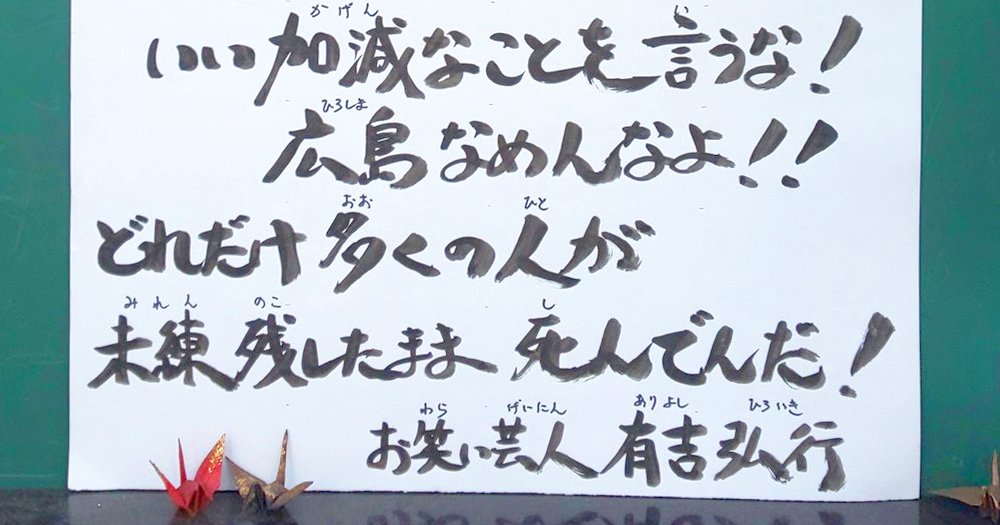 いい加減なことを言うな!
広島なめんなよ!!
どれだけ多くの人が
未練残したまま 死んでんだ!
お笑い芸人 有吉弘行